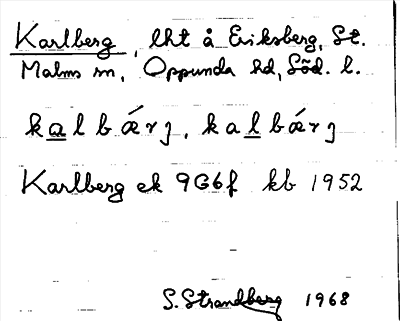 Karlberg, lht å Eriksberg, St.
Malms sn, Oppunda hd, Söd. l.
kalbǽrj, kalbǽrj
Karlberg ek 9G6f kb 1952
S. Strandberg 1968